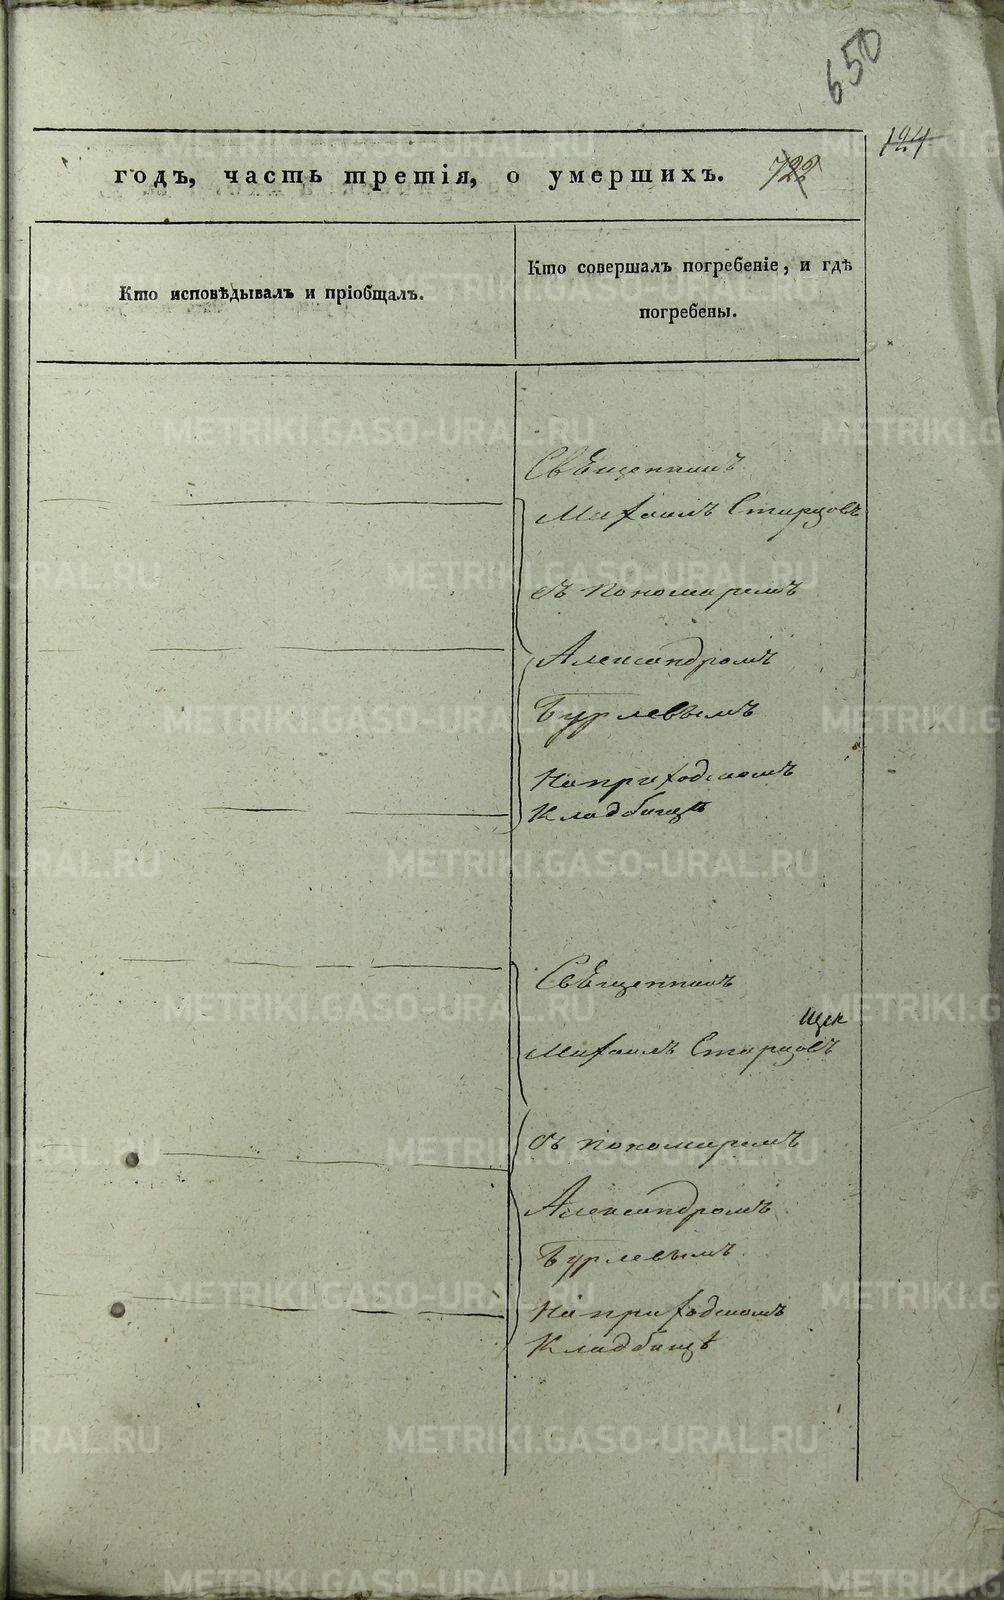 650
124
годъ, часть третія, о умершихъ. 722
Кто исповѣдывалъ и пріобщалъ.
Кто совершалъ погребеніе, и гдѣ
погребены.
Священникъ
Михаилъ Старцовъ
съ пономаремъ
Александромъ
Бурлевымъ
На приходскомъ
Кладбищѣ
Священникъ
Михаилъ Старцовъ
съ пономаремъ
Александромъ
Бурлевымъ
На приходскомъ
Кладбищѣ
METRIKI.GASO-URAL.RU